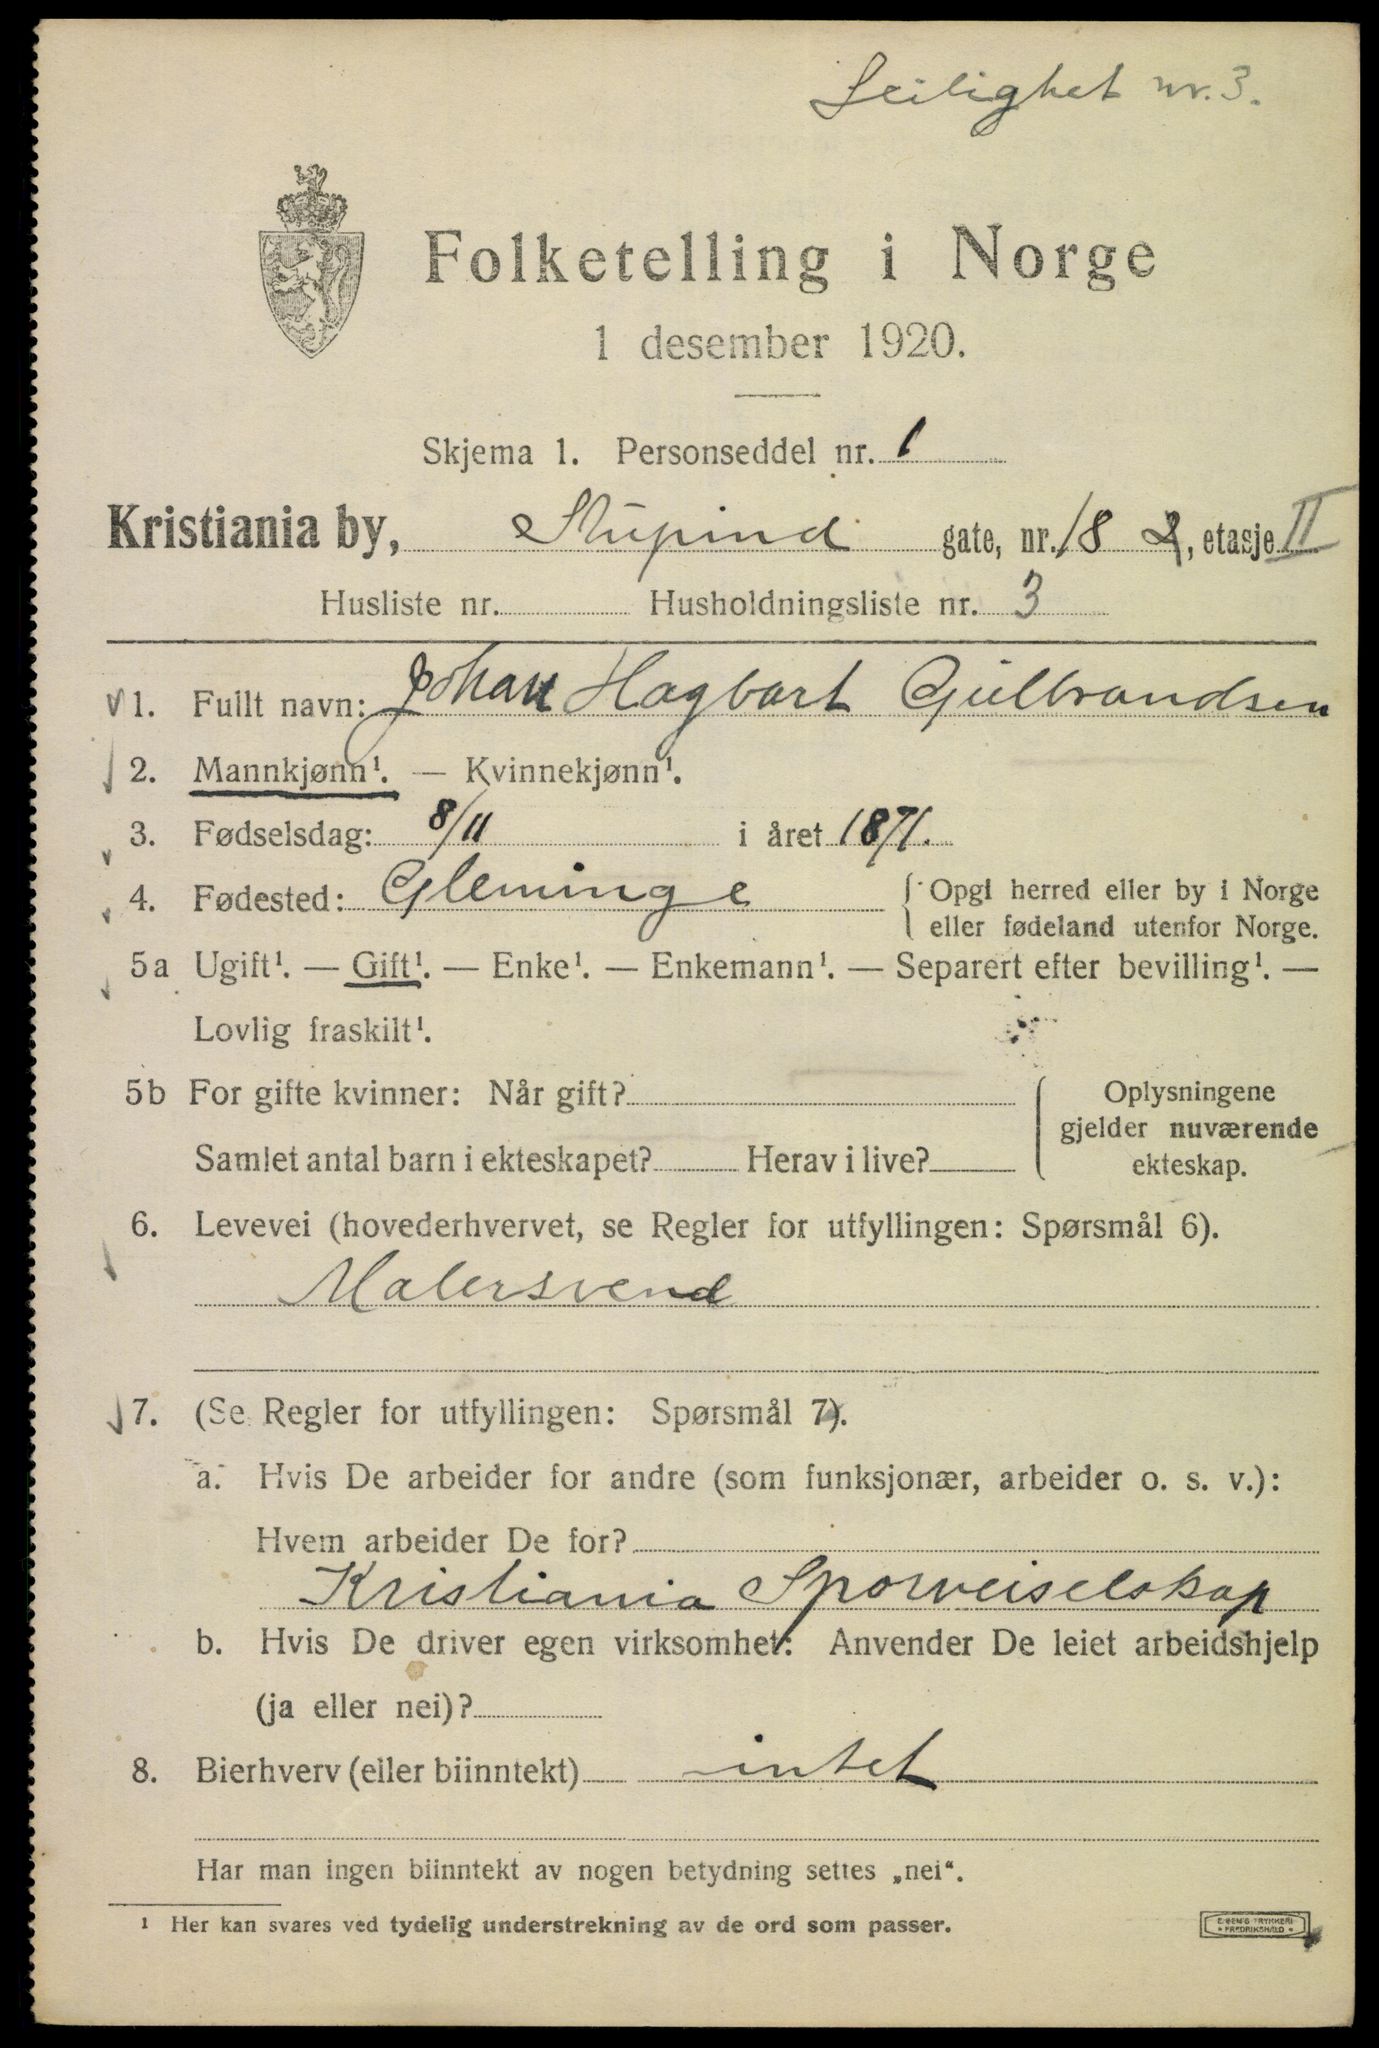 Leilighet nr. 3.
Folketelling i Norge
1 desember 1920.
Skjema 1. Personseddel nr. 1
Kristiania by, Stupind gate, nr. 18 2, etasje II
Husliste nr. Husholdningsliste nr. 3
1. Fullt navn: Johan Hagbart Gulbrandsen
2. Mannkjønn¹. — Kvinnekjønn¹.
3. Fødselsdag: 8/11 i året 1871.
4. Fødested: Gleminge { Opgi herred eller by i Norge
eller fødeland utenfor Norge.
5a Ugift¹. — Gift¹. — Enke¹. — Enkemann¹. — Separert efter bevilling¹. —
Lovlig fraskilt¹.
5b For gifte kvinner: Når gift? { Oplysningene
gjelder nuværende
Samlet antal barn i ekteskapet? Herav i live? ekteskap.
6. Levevei (hovederhvervet, se Regler for utfyllingen: Spørsmål 6).
Malersvend
7. (Se Regler for utfyllingen: Spørsmål 7).
a. Hvis De arbeider for andre (som funksjonær, arbeider o. s. v.):
Hvem arbeider De for?
Kristiania Sporveiselskap
b. Hvis De driver egen virksomhet: Anvender De leiet arbeidshjelp
(ja eller nei)?
8. Bierhverv (eller biinntekt) intet
Har man ingen biinntekt av nogen betydning settes „nei“.
¹ Her kan svares ved tydelig understrekning av de ord som passer.
TRYKKERI
FREDRIKSHALD